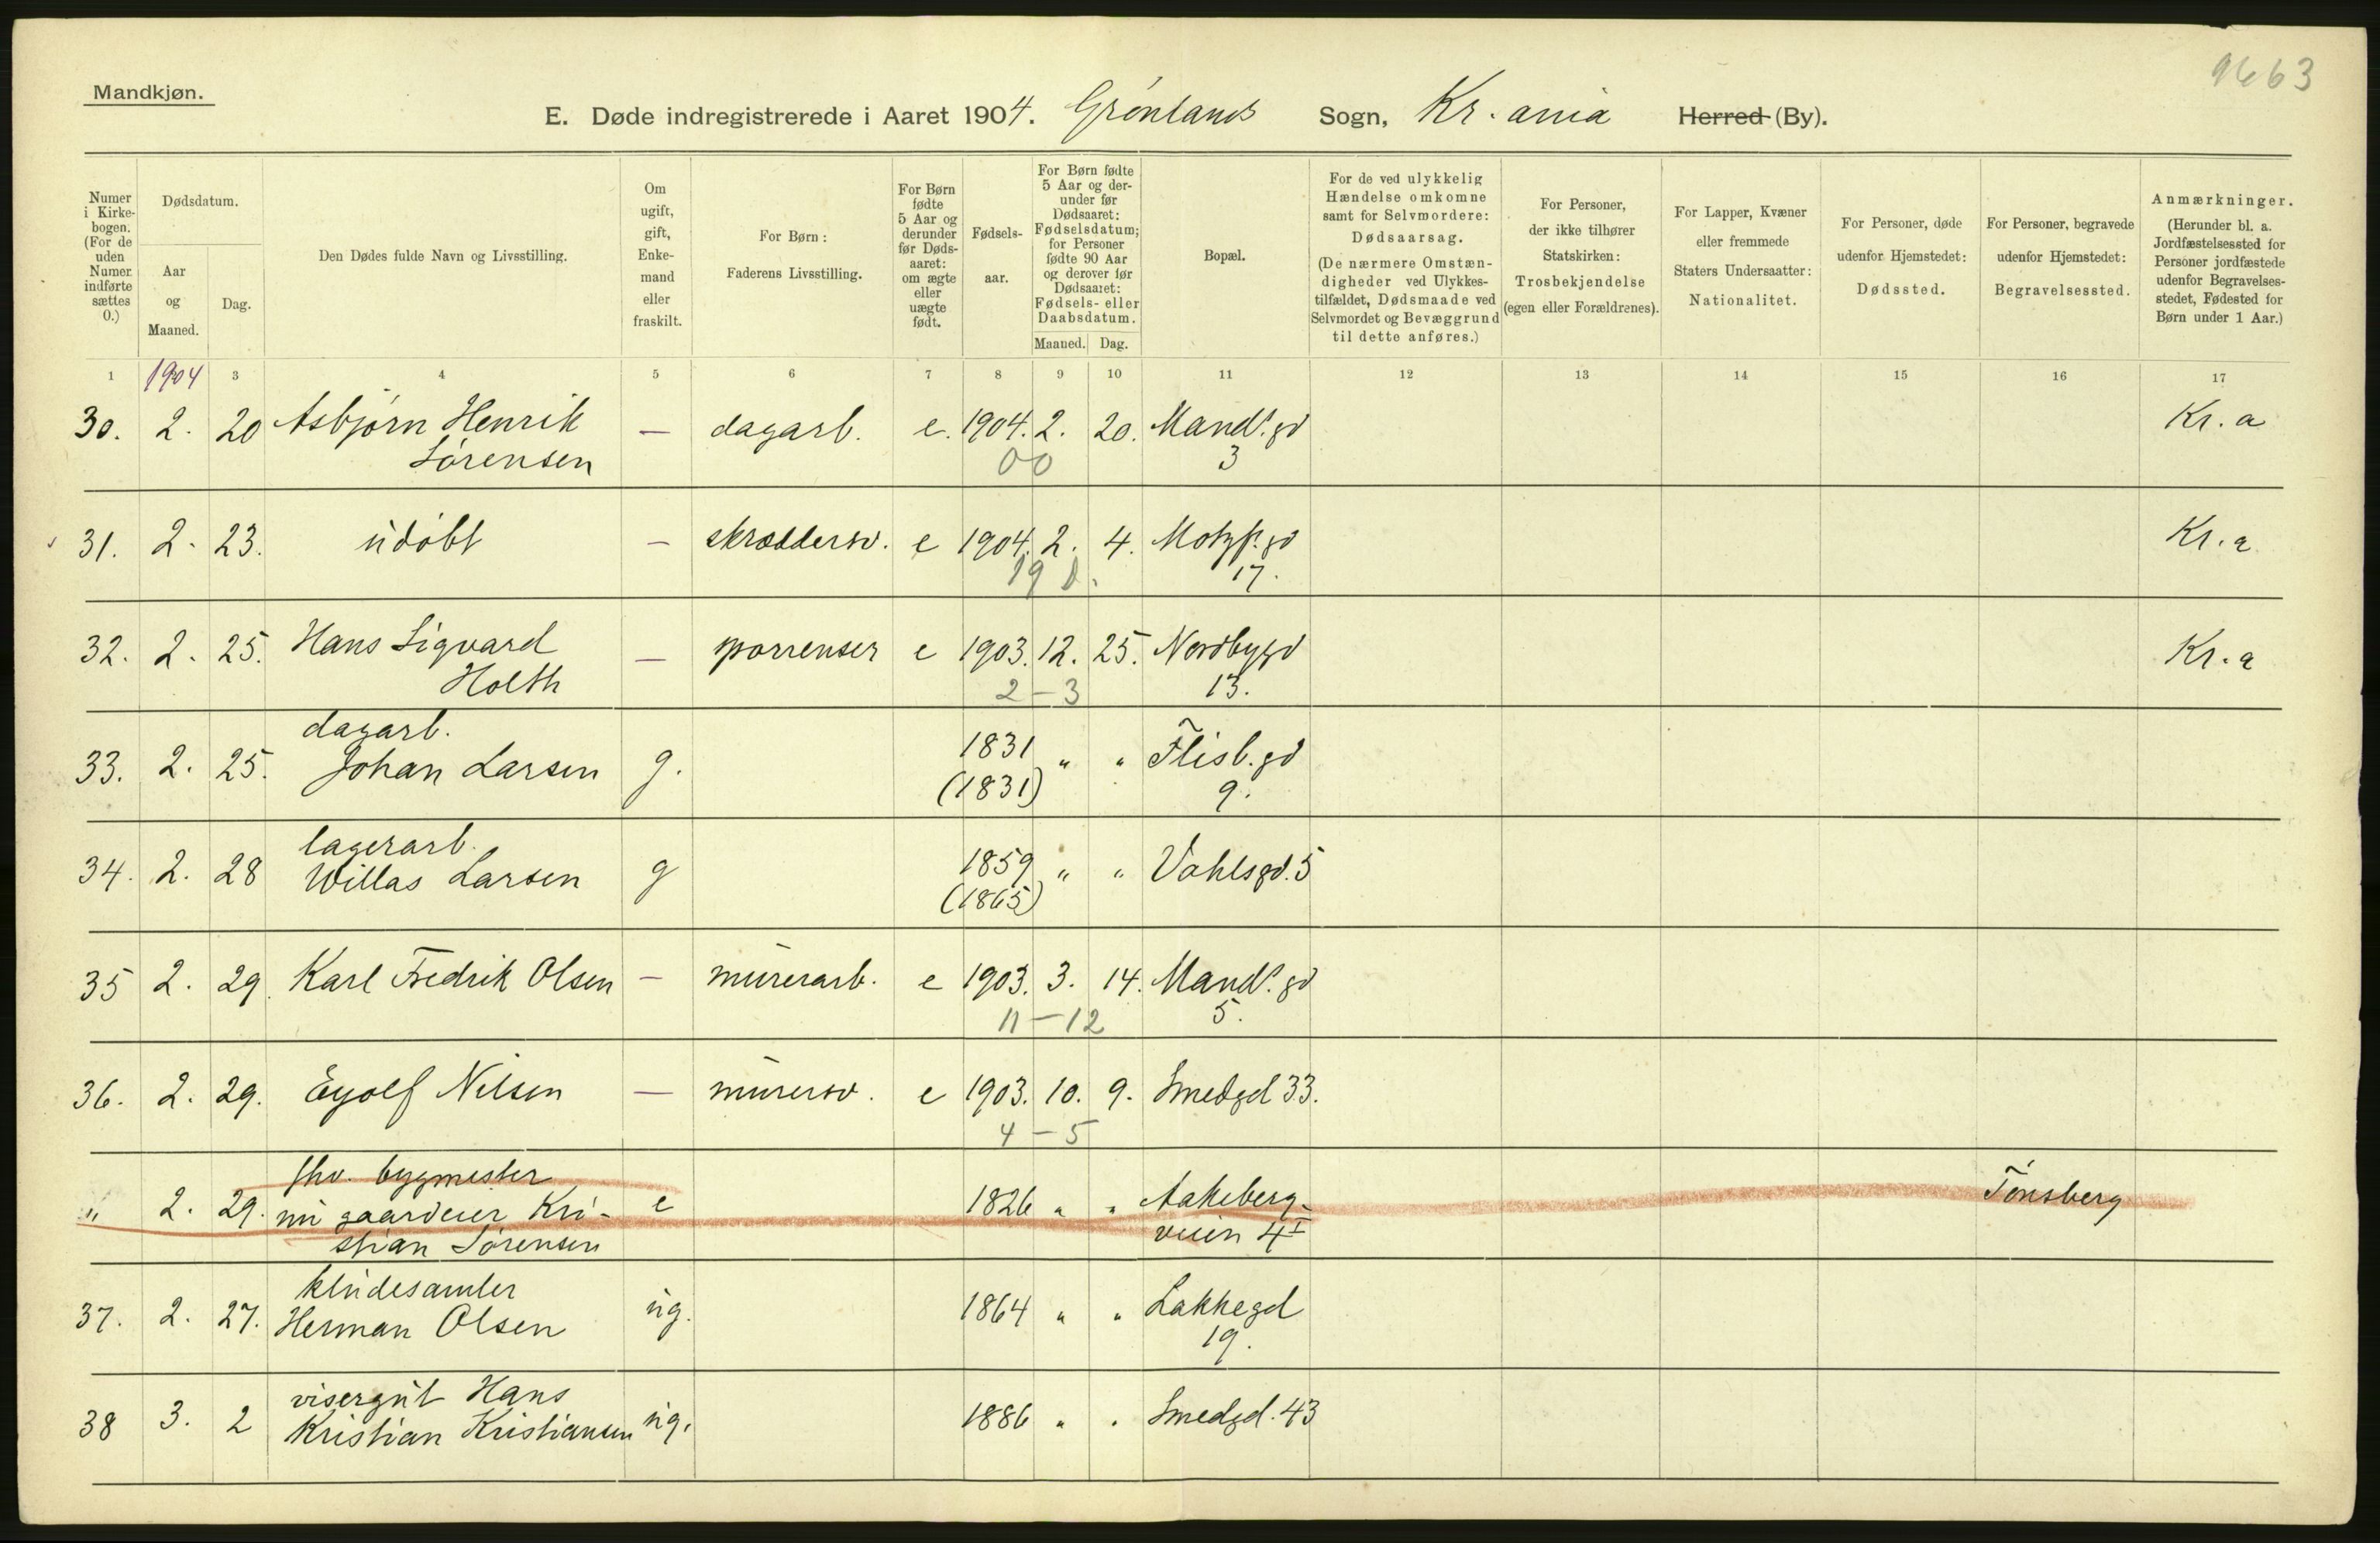 9663
Mandkjøn.
E. Døde indregistrerede i Aaret 1904. Grønlands Sogn, Kr.ania Herred (By).
Numer i Kirke-bogen. (For de uden Numer indførte sættes 0.)
Dødsdatum.
Aar og Maaned.
Dag.
Den Dødes fulde Navn og Livsstilling.
Om ugift, gift, Enke-mand eller fraskilt.
For Børn: Faderens Livsstilling.
For Børn fødte 5 Aar og derunder før Døds-aaret: om ægte eller uægte født.
Fødsels-aar.
For Børn fødte 5 Aar og der-under før Dødsaaret: Fødselsdatum; for Personer fødte 90 Aar og derover før Dødsaaret: Fødsels- eller Daabsdatum.
Maaned. Dag.
Bopæl.
For de ved ulykkelig Hændelse omkomne samt for Selvmordere: Dødsaarsag. (De nærmere Omstæn-digheder ved Ulykkes-tilfældet, Dødsmaade ved Selvmordet og Bevæggrund til dette anføres.)
For Personer, der ikke tilhører Statskirken: Trosbekjendelse (egen eller Forældrenes).
For Lapper, Kvæner eller fremmede Staters Undersaatter: Nationalitet.
For Personer, døde udenfor Hjemstedet: Dødssted.
For Personer, begravede udenfor Hjemstedet: Begravelsessted.
Anmærkninger. (Herunder bl. a. Jordfæstelsessted for Personer jordfæstede udenfor Begravelses-stedet, Fødested for Børn under 1 Aar.)
1 1904 3 4 5 6 7 8 9 10 11 12 13 14 15 16 17
30. 2. 20 Asbjørn Henrik — dagarb. e. 1904. 2. 20. Mand. gd Kr. a
Sørensen 00 3
31. 2. 23. udøbt — skræddersv. e 1904. 2. 4. Motzf. gd Kr. a
17.
32. 2. 25. Hans Sigvard — portenser e 1903. 12. 25. Nordbygd Kr. a
Holth 2–3 13.
dagarb.
33. 2. 25. Johan Larsen g. 1831 " " Flisb. gd
(1831) 9.
lagerarb.
34. 2. 28 Willas Larsen g 1859 " " Vahlsgd. 5
(1865)
35 2. 29. Karl Fredrik Olsen — murerarb. e 1903. 3. 14. Mand. gd
11–12 5.
36. 2. 29. Eyolf Nilsen — murersv. e 1903. 10. 9. Smedgd 33.
4–5
fhv. bygmester
" 2. 29. nu gaardeier Kri- e 1826 " " Aakeberg- Tønsberg
stian Sørensen veien 4 I
kludesamler
37. 2. 27. Herman Olsen ug. 1864 " " Lakkegd
19.
visergut Hans
38 3. 2 Kristian Kristiansen ug. 1886 " " Smedgd. 43